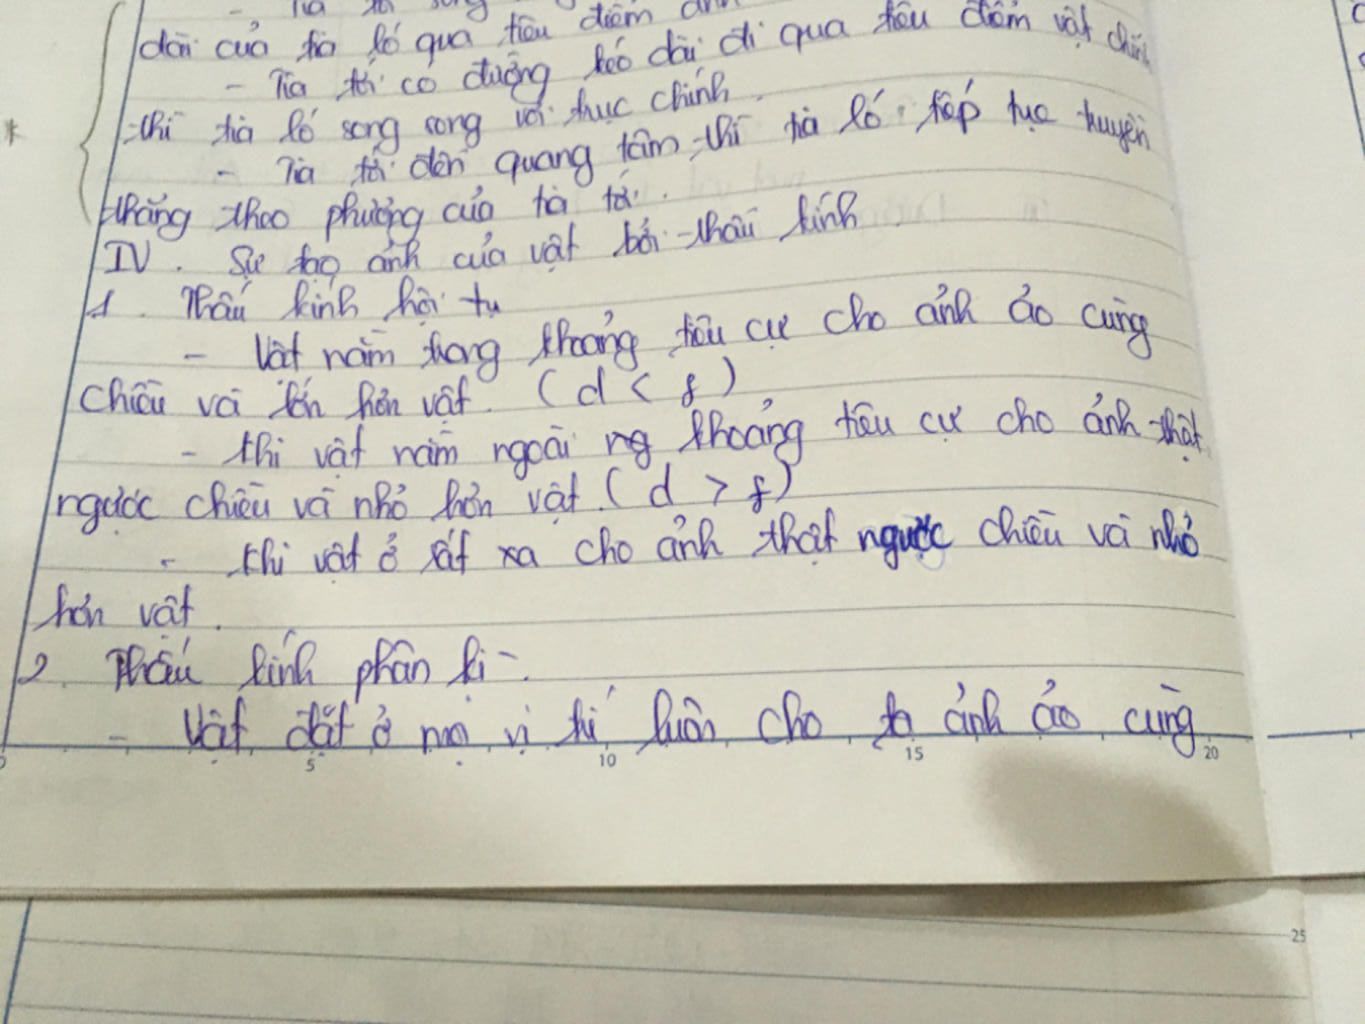 - Tia tới song
dài của tia ló qua tiêu điểm ảnh
- Tia tới có đường kéo dài đi qua tiêu điểm vật chính
thì tia ló song song với trục chính.
- Tia tới đến quang tâm thì tia ló tiếp tục truyền
thẳng theo phương của tia tới.
IV. Sự tạo ảnh của vật bởi thấu kính
1. Thấu kính hội tụ
- Vật nằm trong khoảng tiêu cự cho ảnh ảo cùng
chiều và lớn hơn vật. (d < f)
- Khi vật nằm ngoài ng khoảng tiêu cự cho ảnh thật
ngược chiều và nhỏ hơn vật. (d > f)
- Khi vật ở rất xa cho ảnh thật ngược chiều và nhỏ
hơn vật.
2. Thấu kính phân kì.
- Vật đặt ở mọi vị trí luôn cho ta ảnh ảo cùng
5 10 15 20
25